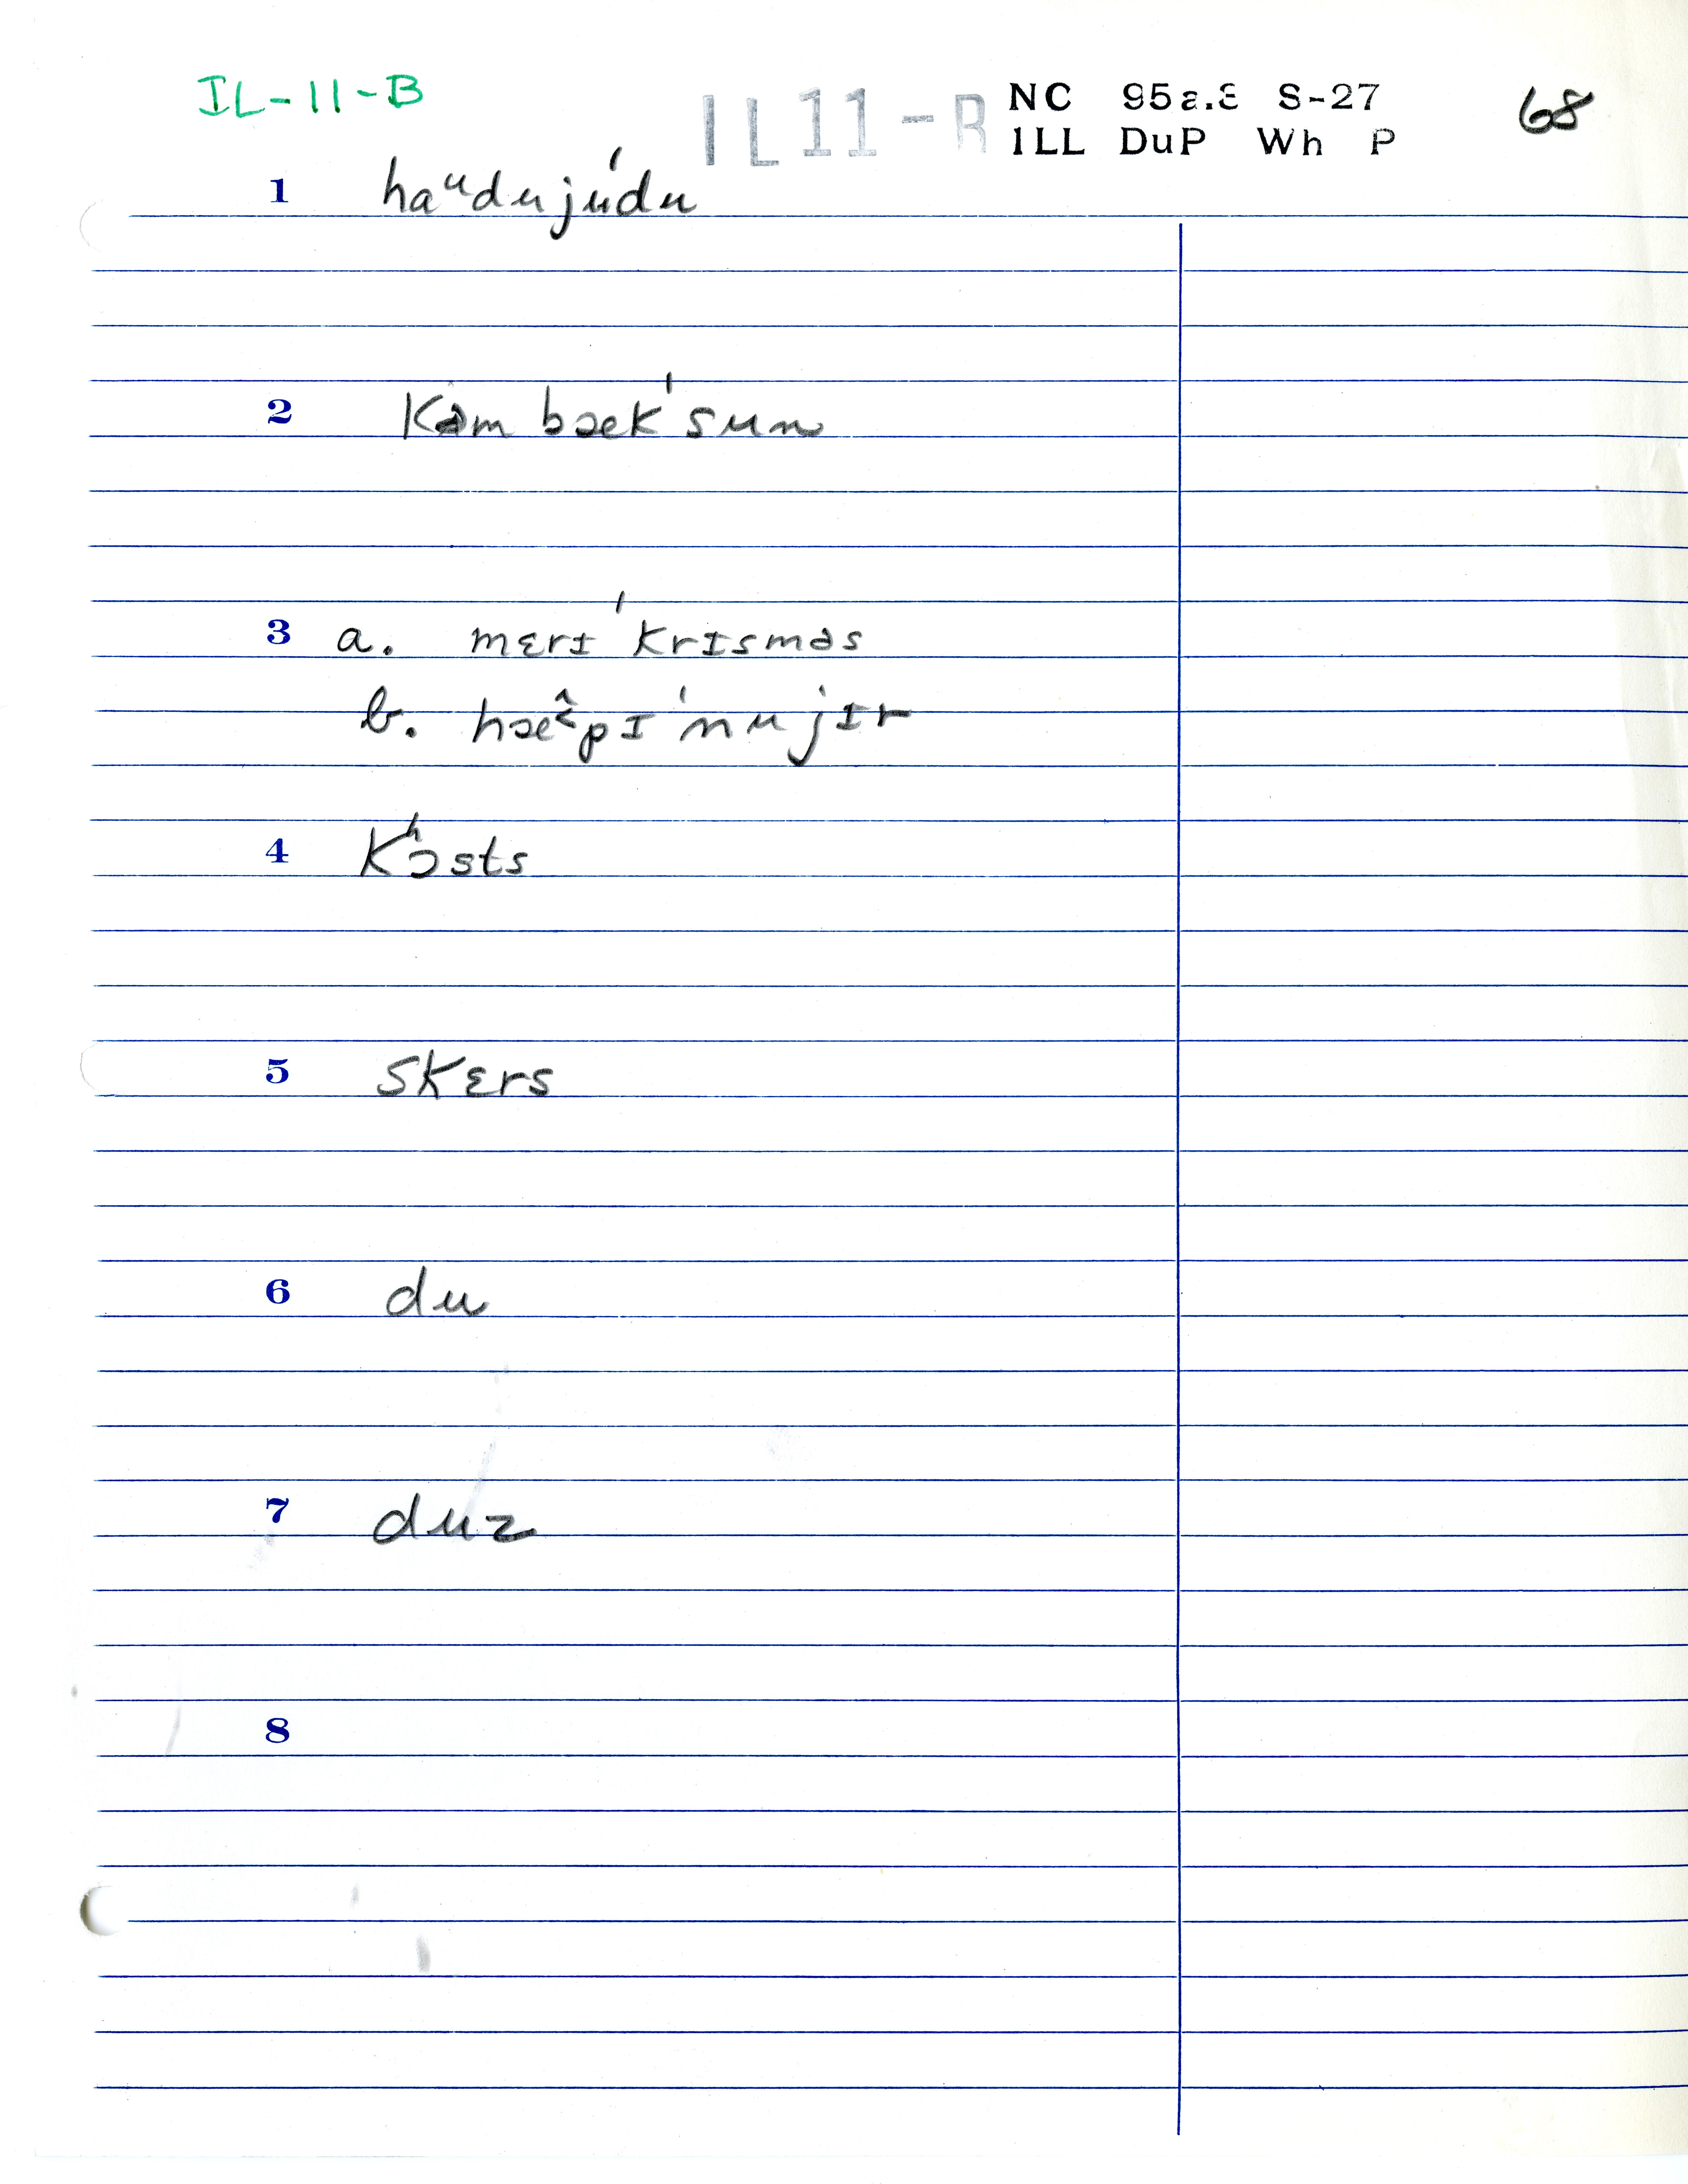 IL-11-B IL11-B NC 95a.8 S-27 68
ILL DuP Wh P
1 haᵘdujúdu
2 kəm bæk ˈsun
3 a. mɛrɪ ˈkrɪsməs
b. hæ˂̂pɪ ˈnujɪr
4 kʰɔsts
5 skɛrs
6 du
7 duz
8